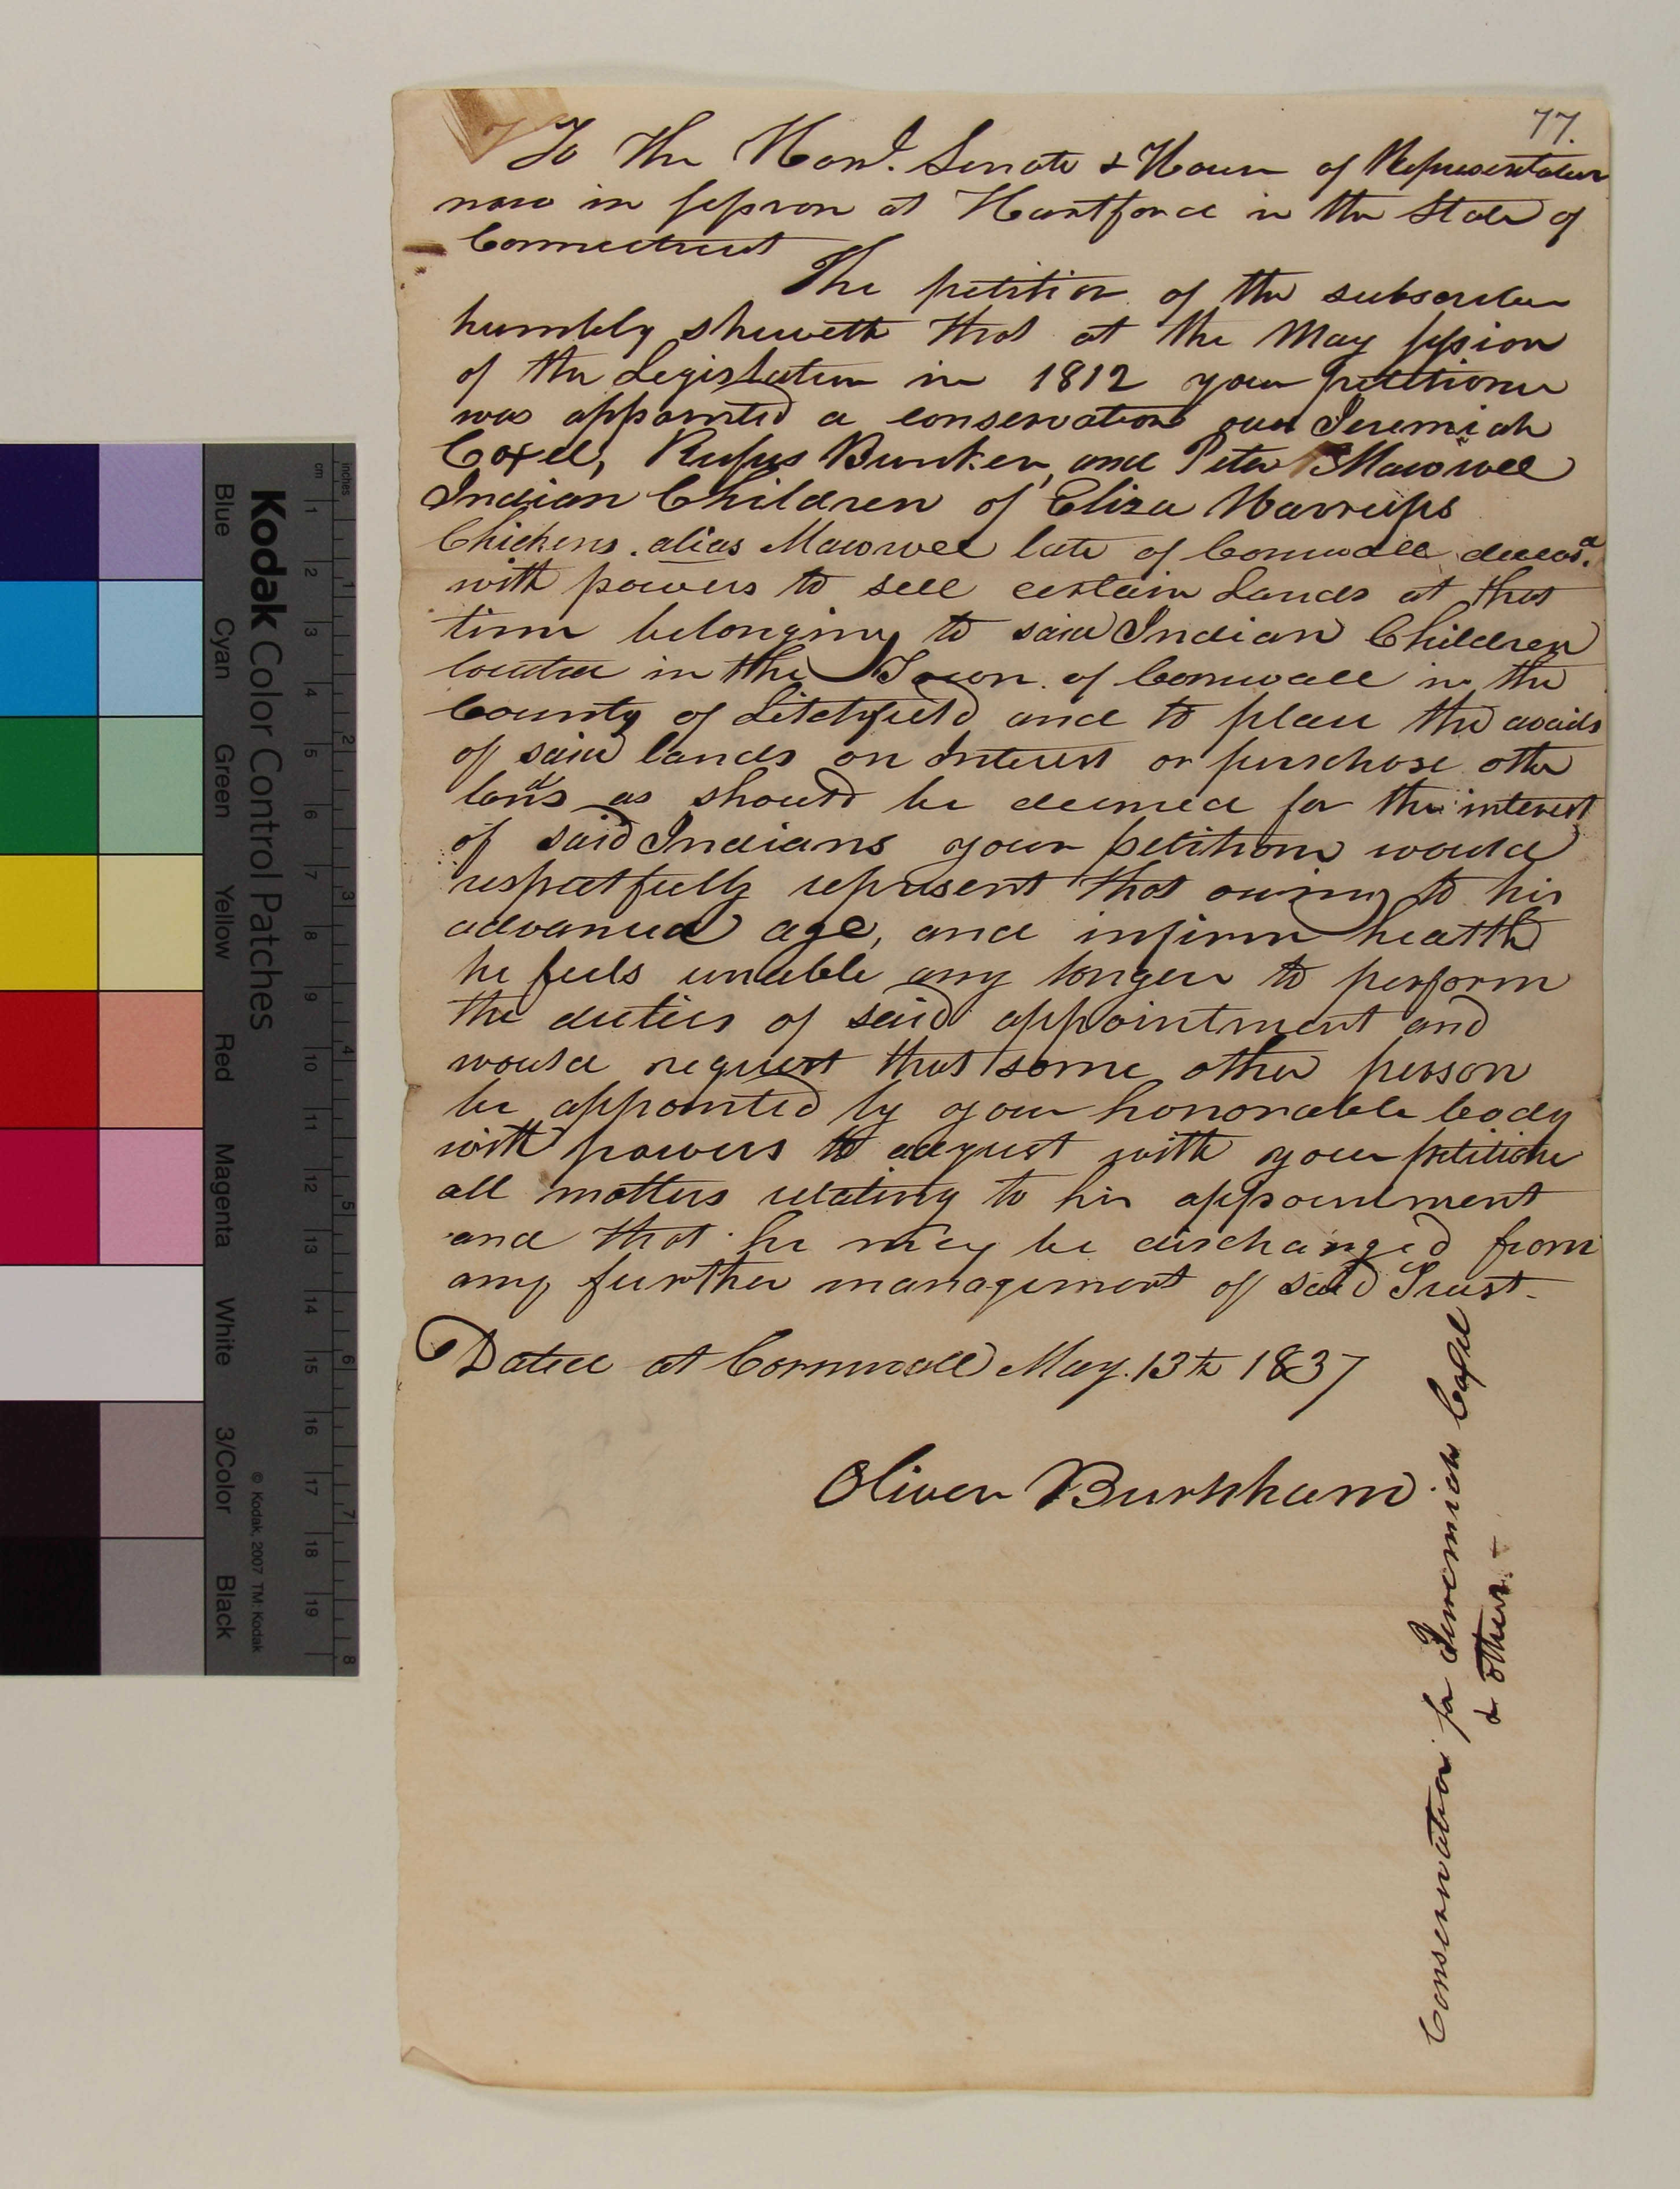 77.
To the Hon.l Senate & House of Representatives
now in session at Hartford in the State of
Connecticut
The petition of the subscriber
humbly sheweth that at the May session
of the Legislature in 1812 your petitioner
was appointed a conservator over Jeremiah
Coxel, Rufus Bunker, and Peter Mawwee
Indian Children of Eliza Warrups
Chickens. alias Mawwee late of Cornwall deceas.d
with powers to sell certain Lands at that
time belonging to said Indian Children
located in the Town of Cornwall in the
County of Litchfield and to place the avails
of said lands on Interest or purchase other
lands as should be deemed for the interest
of said Indians your petitioner would
respectfully represent that owing to his
advanced age, and infirm health
he feels unable any longer to perform
the duties of said appointment and
would request that some other person
be appointed by your honorable body
with powers to adjust with your petitioner
all matters relating to his appointment
and that he may be discharged from
any further management of said Trust.
Dated at Cornwall May. 13th 1837
Oliver Burnham
Conservator for Jeremiah Coxel
& others.
Kodak Color Control Patches
Blue Cyan Green Yellow Red Magenta White 3/Color Black
© Kodak, 2007 TM: Kodak
cm 1 2 3 4 5 6 7 8 9 10 11 12 13 14 15 16 17 18 19
inches 1 2 3 4 5 6 7 8